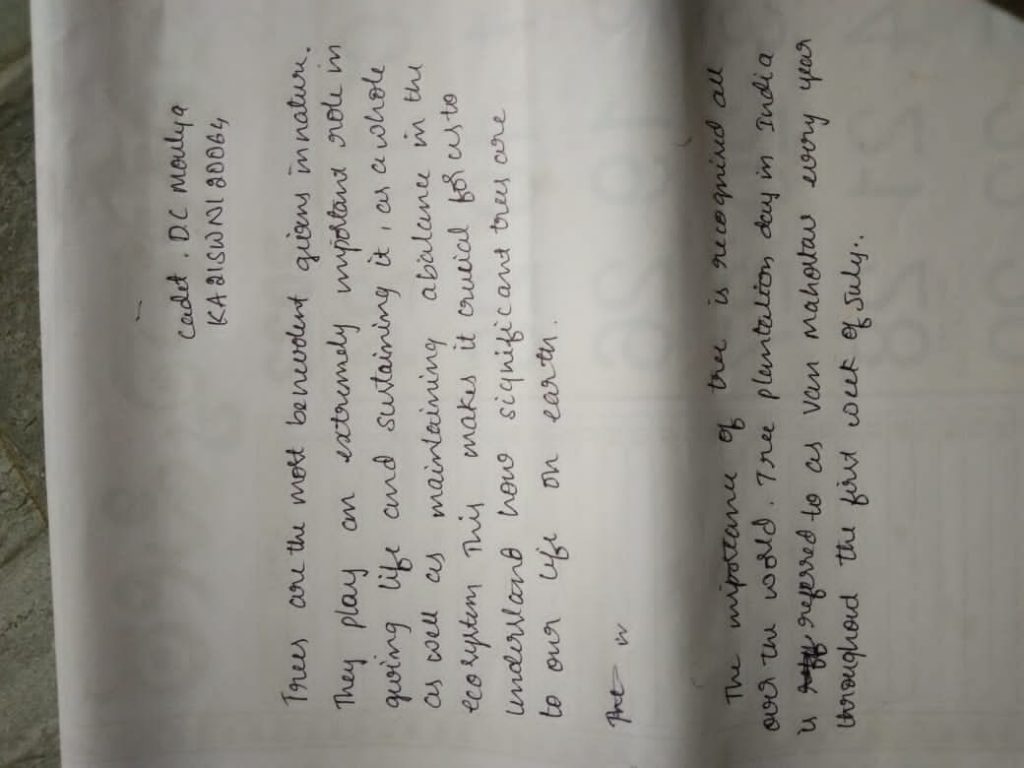 Cadet . D.C Moulya
KA21SWN120064
Trees are the most benevolent givens in nature.
They play an extremely important role in
giving life and sustaining it, as a whole
as well as maintaining abalance in the
ecosystem This makes it crucial for us to
understand how significant trees are
to our life on earth.
The importance of tree is recognised all
over the world. Tree plantation day in India
is referred to as van mahotav every year
throughout the first week of July..